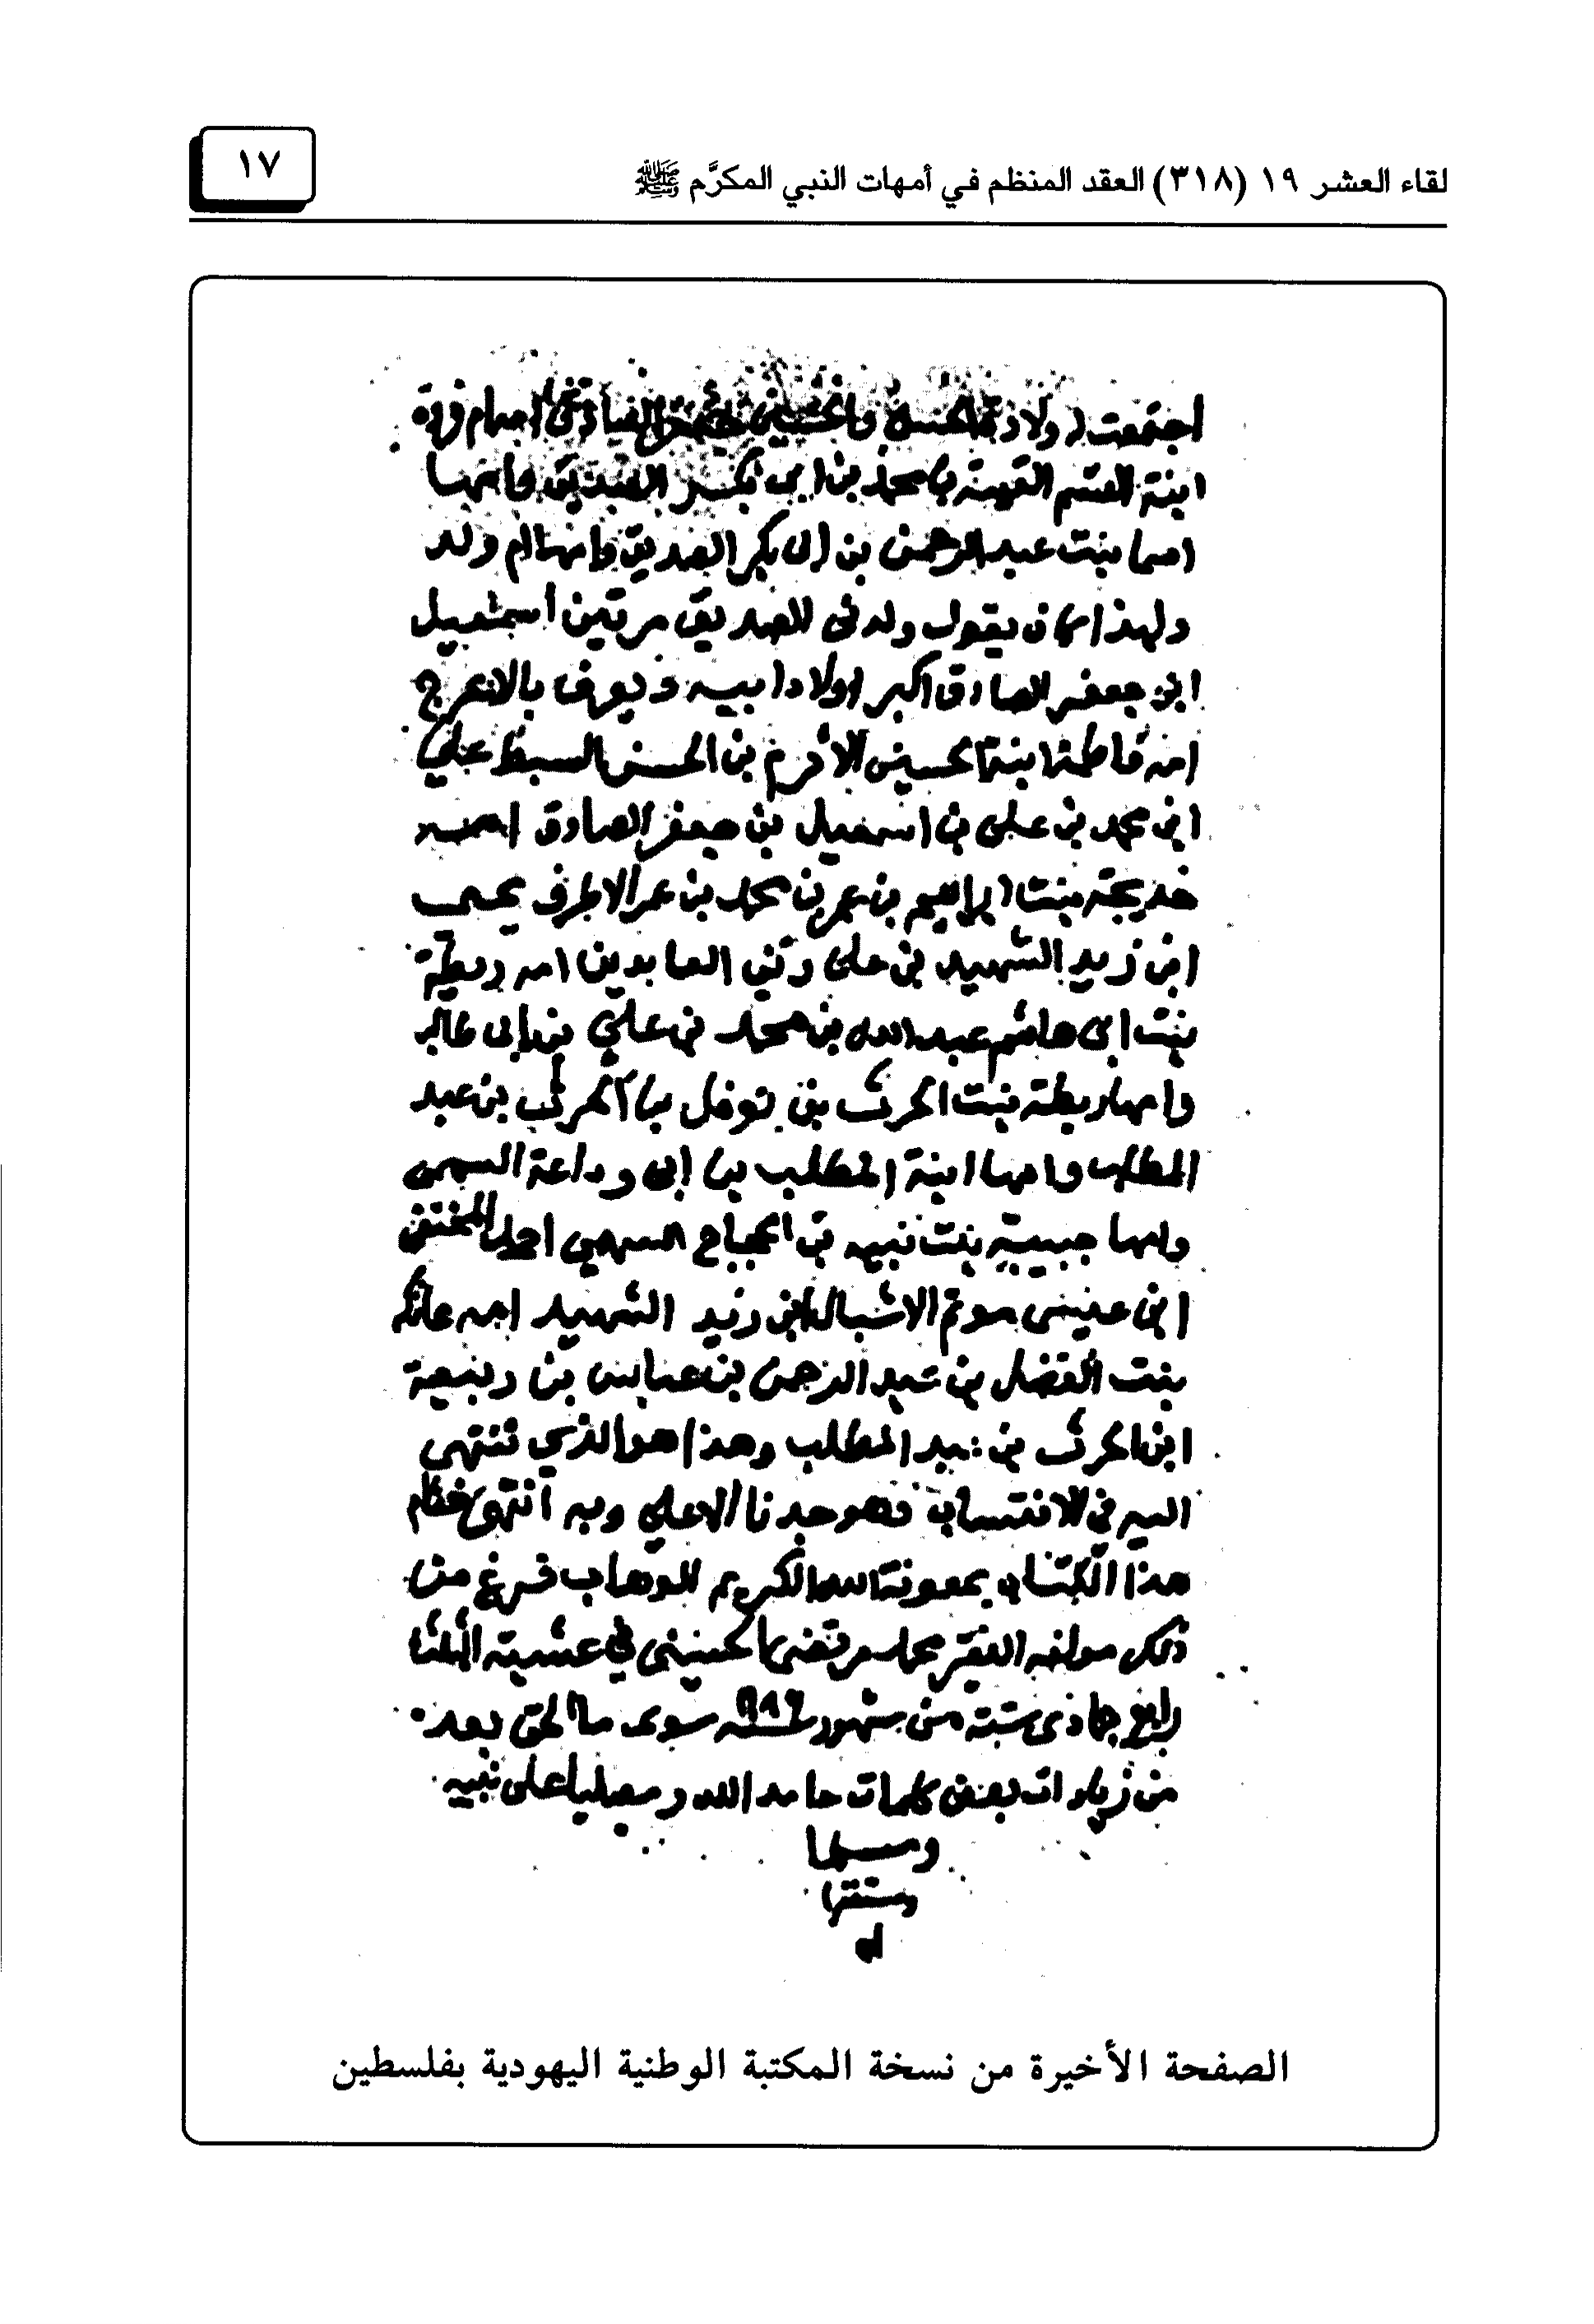 لقاء العشر ١٩ (٣١٨) العقد المنظم في أمهات النبي المكرَّم ﷺ
١٧
اجتمعت ولادة الحسن والحسين جعفر الصادق امه ام فروة
ابنة القسم الفقيه بن محمد بن ابى بكر الصديق وامها
اسما بنت عبد الرحمن بن ابى بكر الصديق وامها ام ولد
ولهذا كان يقول ولدنى الصديق مرتين اسمعيل
ابن جعفر الصادق اكبر اولاد ابيه ويعرف بالاعرج
امه فاطمة ابنة الحسين الاثرم بن الحسن السبط علي
ابن محمد بن على بن اسمعيل بن جعفر الصادق امه
خديجة بنت ابراهيم بن عمر بن محمد بن عمر الاطرف يحيى
ابن زيد الشهيد بن على زين العابدين امه ريطة
بنت ابى هاشم عبد الله بن محمد بن علي بن ابى طالب
وامها ريطة بنت الحرث بن نوفل بن الحرث بن عبد
المطلب وامها ابنة المطلب بن ابى وداعة السهمى
وامها حبيبة بنت نبيه بن الحجاج السهمي احمد المختفى
ابن عيسى موتم الاشبال ابن زيد الشهيد امه عاتكه
بنت الفضل بن عبد الرحمن بن عباس بن ربيعة
ابن الحرث بن عبد المطلب وهذا هو الذي تنتهى
اليه في الانتساب فهو جدنا الاعلى وبه انتهى ختام
هذا الكتاب بمعونة الله الكريم الوهاب فرغ من
ذلك مولفه الفقير محمد مرتضى الحسينى في عشية الثلثا
رابع جمادى ستة من شهور سنة سوى ما الحق بعده
من زيادات بعض كلمات حامدا لله ومصليا على نبيه
ومسلما
الصفحة الأخيرة من نسخة المكتبة الوطنية اليهودية بفلسطين